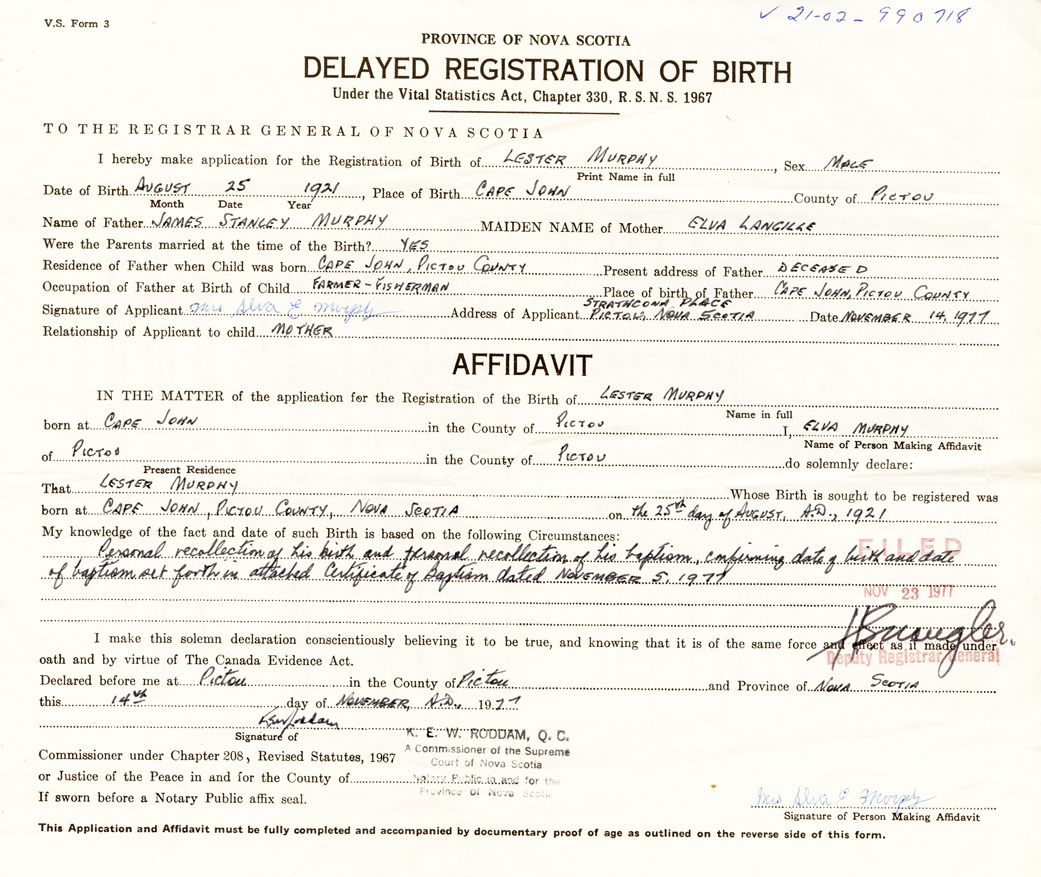 V.S. Form 3
✓ 21-02-990718
PROVINCE OF NOVA SCOTIA
DELAYED REGISTRATION OF BIRTH
Under the Vital Statistics Act, Chapter 330, R. S. N. S. 1967
TO THE REGISTRAR GENERAL OF NOVA SCOTIA
I hereby make application for the Registration of Birth of LESTER MURPHY, Sex MALE
Print Name in full
Date of Birth AUGUST 25 1921, Place of Birth CAPE JOHN County of PICTOU
Month Date Year
Name of Father JAMES STANLEY MURPHY MAIDEN NAME of Mother ELVA LANGILLE
Were the Parents married at the time of the Birth? YES
Residence of Father when Child was born CAPE JOHN, PICTOU COUNTY Present address of Father DECEASED
Occupation of Father at Birth of Child FARMER-FISHERMAN Place of birth of Father CAPE JOHN, PICTOU COUNTY
STRATHCONA PLACE
Signature of Applicant Mrs Elva E Murphy Address of Applicant PICTOU, NOVA SCOTIA Date NOVEMBER 14, 1977
Relationship of Applicant to child MOTHER
AFFIDAVIT
IN THE MATTER of the application for the Registration of the Birth of LESTER MURPHY
Name in full
born at CAPE JOHN in the County of PICTOU I, ELVA MURPHY
Name of Person Making Affidavit
of PICTOU in the County of PICTOU do solemnly declare:
Present Residence
That LESTER MURPHY Whose Birth is sought to be registered was
born at CAPE JOHN, PICTOU COUNTY, NOVA SCOTIA on the 25th day of AUGUST, A.D., 1921
My knowledge of the fact and date of such Birth is based on the following Circumstances:
Personal recollection of his birth and personal recollection of his baptism, confirming date of birth and date
FILED
of baptism set forth in attached Certificate of Baptism dated NOVEMBER 5, 1977
NOV 23 1977
I make this solemn declaration conscientiously believing it to be true, and knowing that it is of the same force and effect as if made under
Deputy Registrar General
oath and by virtue of The Canada Evidence Act.
Declared before me at Pictou in the County of Pictou and Province of NOVA SCOTIA
this 14th day of NOVEMBER, A.D., 1977
Signature of
K. E. W. RODDAM, Q. C.
A Commissioner of the Supreme
Court of Nova Scotia
Notary Public in and for the
Province of Nova Scotia
Commissioner under Chapter 208, Revised Statutes, 1967
or Justice of the Peace in and for the County of
If sworn before a Notary Public affix seal.
Mrs Elva E Murphy
Signature of Person Making Affidavit
This Application and Affidavit must be fully completed and accompanied by documentary proof of age as outlined on the reverse side of this form.